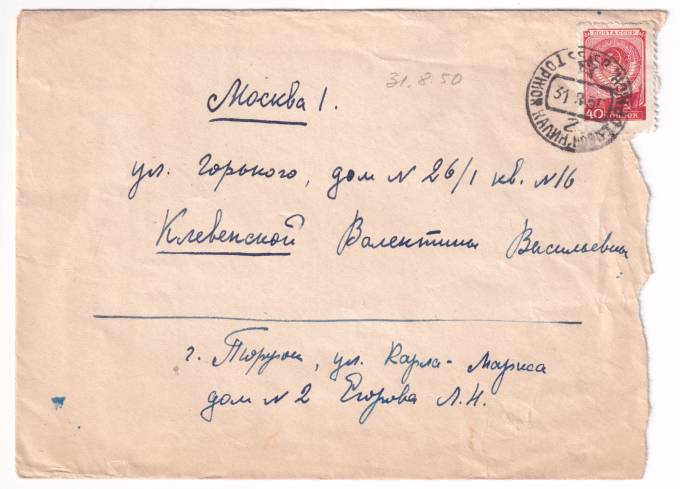 31.8.50
ПОЧТА СССР
40 КОПЕЕК
31 8 50
2
Москва 1.
ул. Горького, дом N 26/1 кв. N16
Клевенской Валентины Васильевны
г. Торжок, ул. Карла-Маркса
дом N 2 Егорова Л.Н.